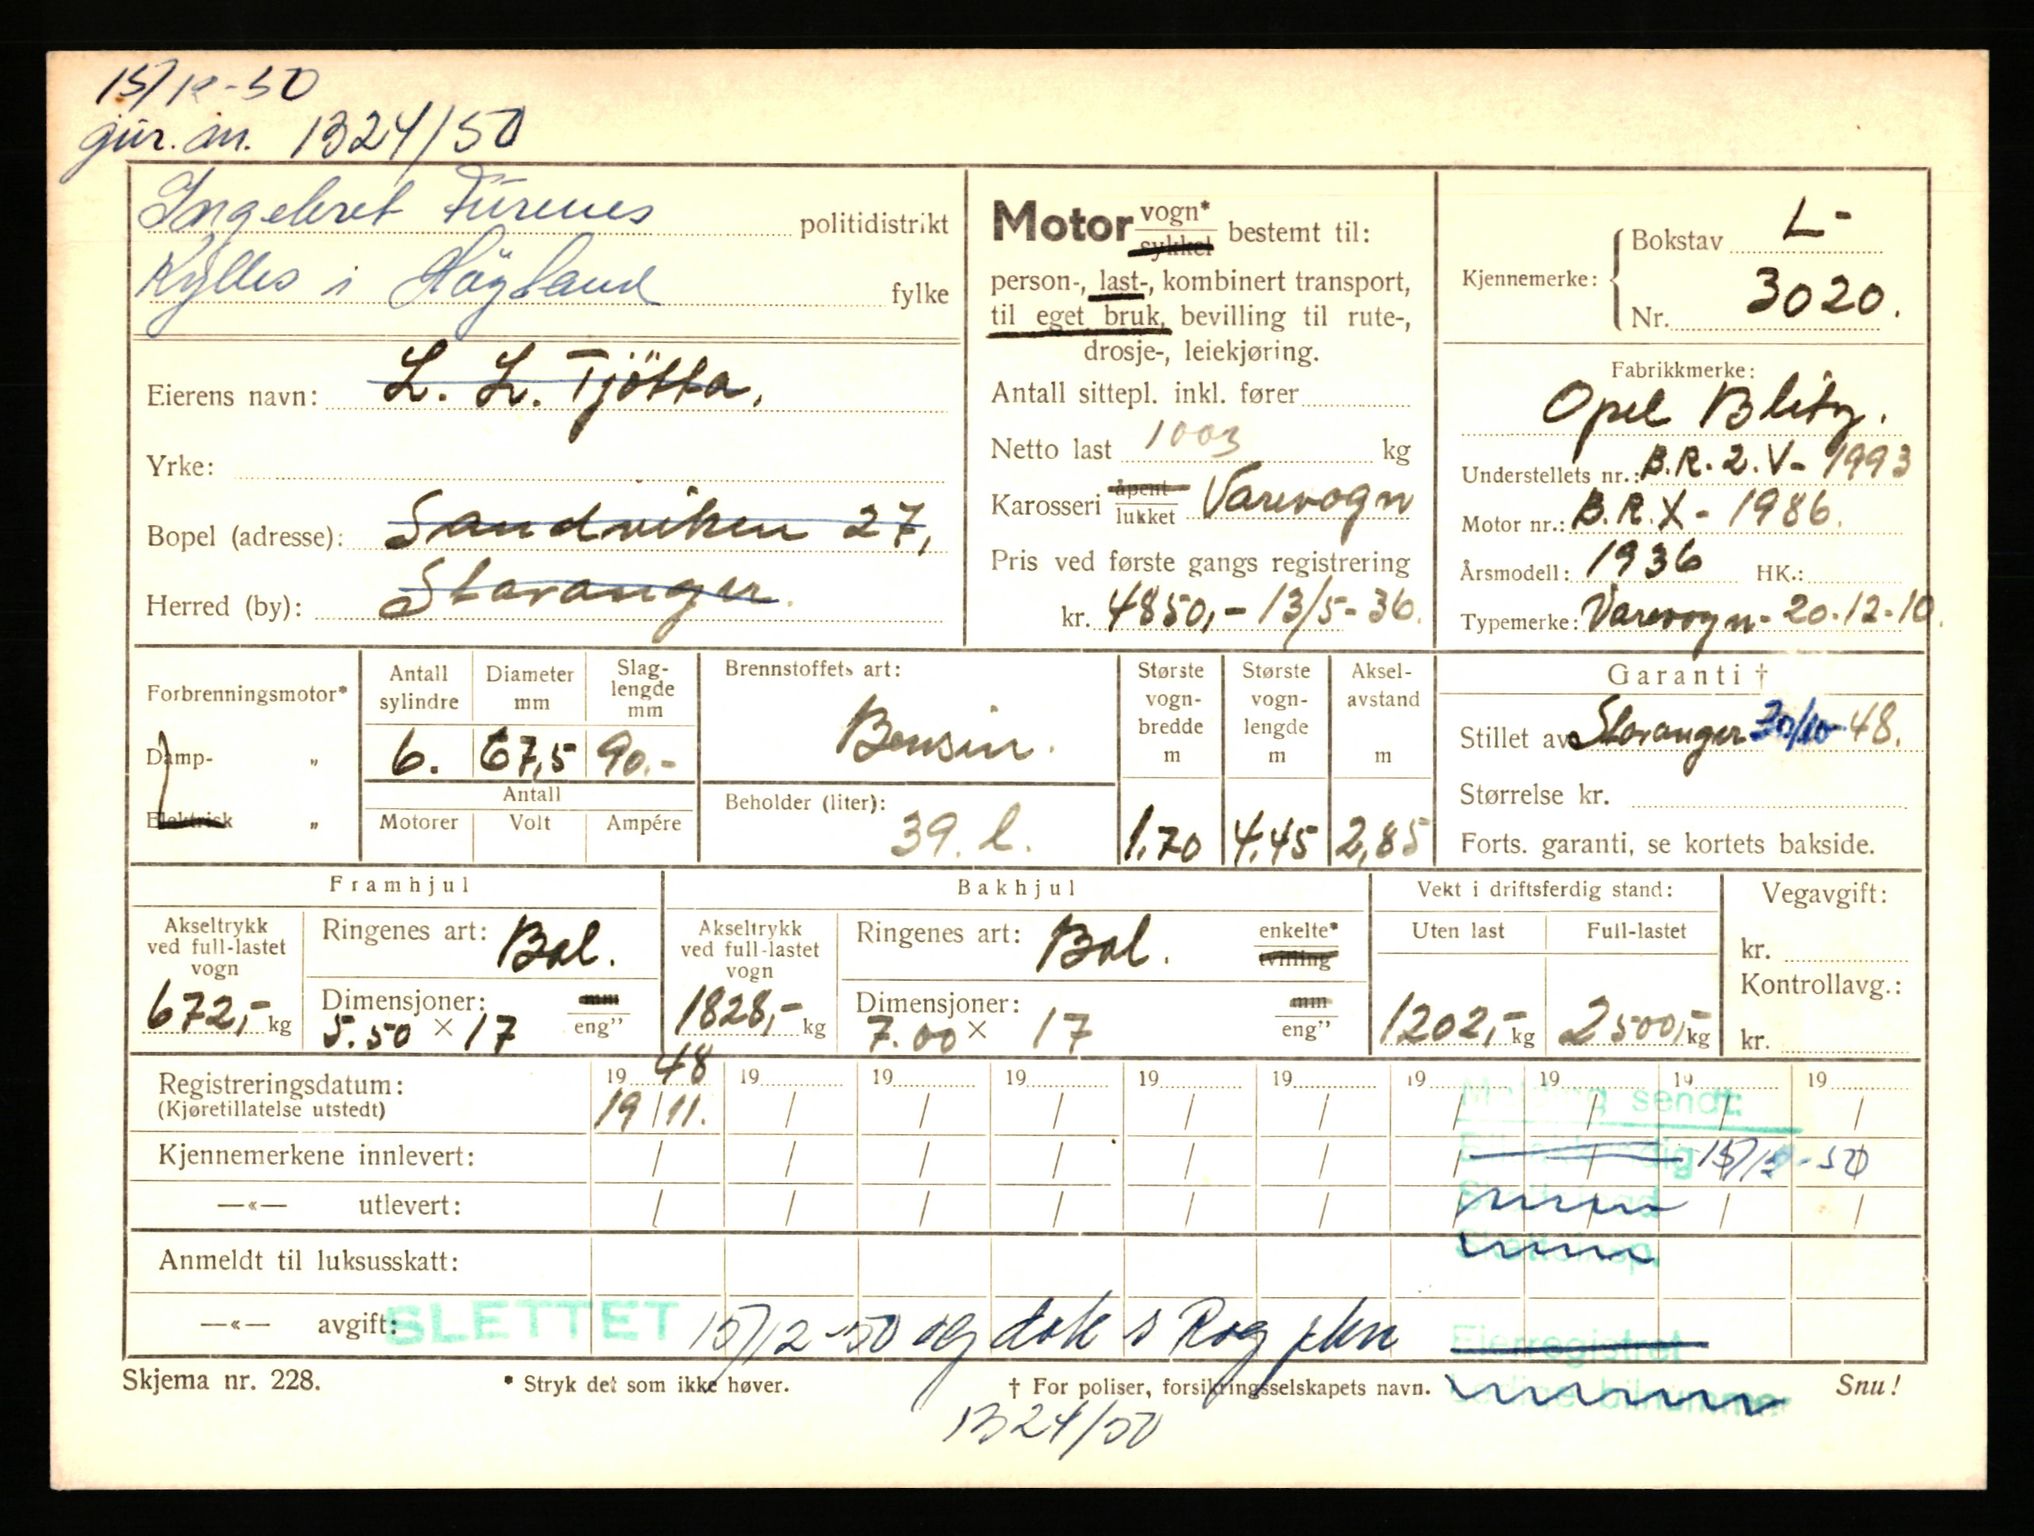 15/12-50
gür. an. 1324/50
Ingebret Fürenes politidistrikt
Kylles i Høyland fylke
Eierens navn: L. L. Tjötta.
Yrke:
Bopel (adresse): Sandviken 27,
Herred (by): Stavanger.
Motor vogn* sykkel bestemt til:
person-, last-, kombinert transport,
til eget bruk, bevilling til rute-,
drosje-, leiekjøring.
Antall sittepl. inkl. fører
Netto last 1003 kg
Karosseri åpent lukket Varevogn
Pris ved første gangs registrering
kr. 4850,- 13/5-36.
Kjennemerke: Bokstav L-
Nr. 3020.
Fabrikkmerke:
Opel Blitz.
Understellets nr.: B.R.2.V- 1993
Motor nr.: B.R.X- 1986.
Årsmodell: 1936 HK.:
Typemerke: Varevogn- 20-12-10.
Forbrenningsmotor*
Damp- „
Elektrisk „
Antall sylindre 6.
Diameter mm 67,5
Slag-lengde mm 90.-
Antall
Motorer Volt Ampére
Brennstoffets art:
Bensin.
Beholder (liter):
39. l.
Største vogn-bredde m 1,70
Største vogn-lengde m 4.45
Aksel-avstand m 2,85
Garanti †
Stillet av Stavanger 30/10-48.
Størrelse kr.
Forts. garanti, se kortets bakside.
Framhjul
Akseltrykk ved full-lastet vogn
672,- kg
Ringenes art: Bal.
Dimensjoner: mm
5.50 × 17 eng”
Bakhjul
Akseltrykk ved full-lastet vogn
1828,- kg
Ringenes art: Bal. enkelte* tvilling
Dimensjoner: mm
7.00 × 17 eng”
Vekt i driftsferdig stand:
Uten last Full-lastet
1202,- kg 2500,- kg
Vegavgift:
kr.
Kontrollavg.:
kr.
Registreringsdatum: 19 48 19 19 19 19 19 19 19 19 19
(Kjøretillatelse utstedt) 19/11. / / / / / / / / /
Melding sendt:
Kjennemerkene innlevert: / / / / / / 15/12-50
—«— utlevert: / / / / / / / / /
Anmeldt til luksusskatt:
—«— avgift: SLETTET 15/12-50 og dok s Rog
Eierregistret
Skjema nr. 228. * Stryk det som ikke høver. † For poliser, forsikringsselskapets navn. Snu!
1324/50